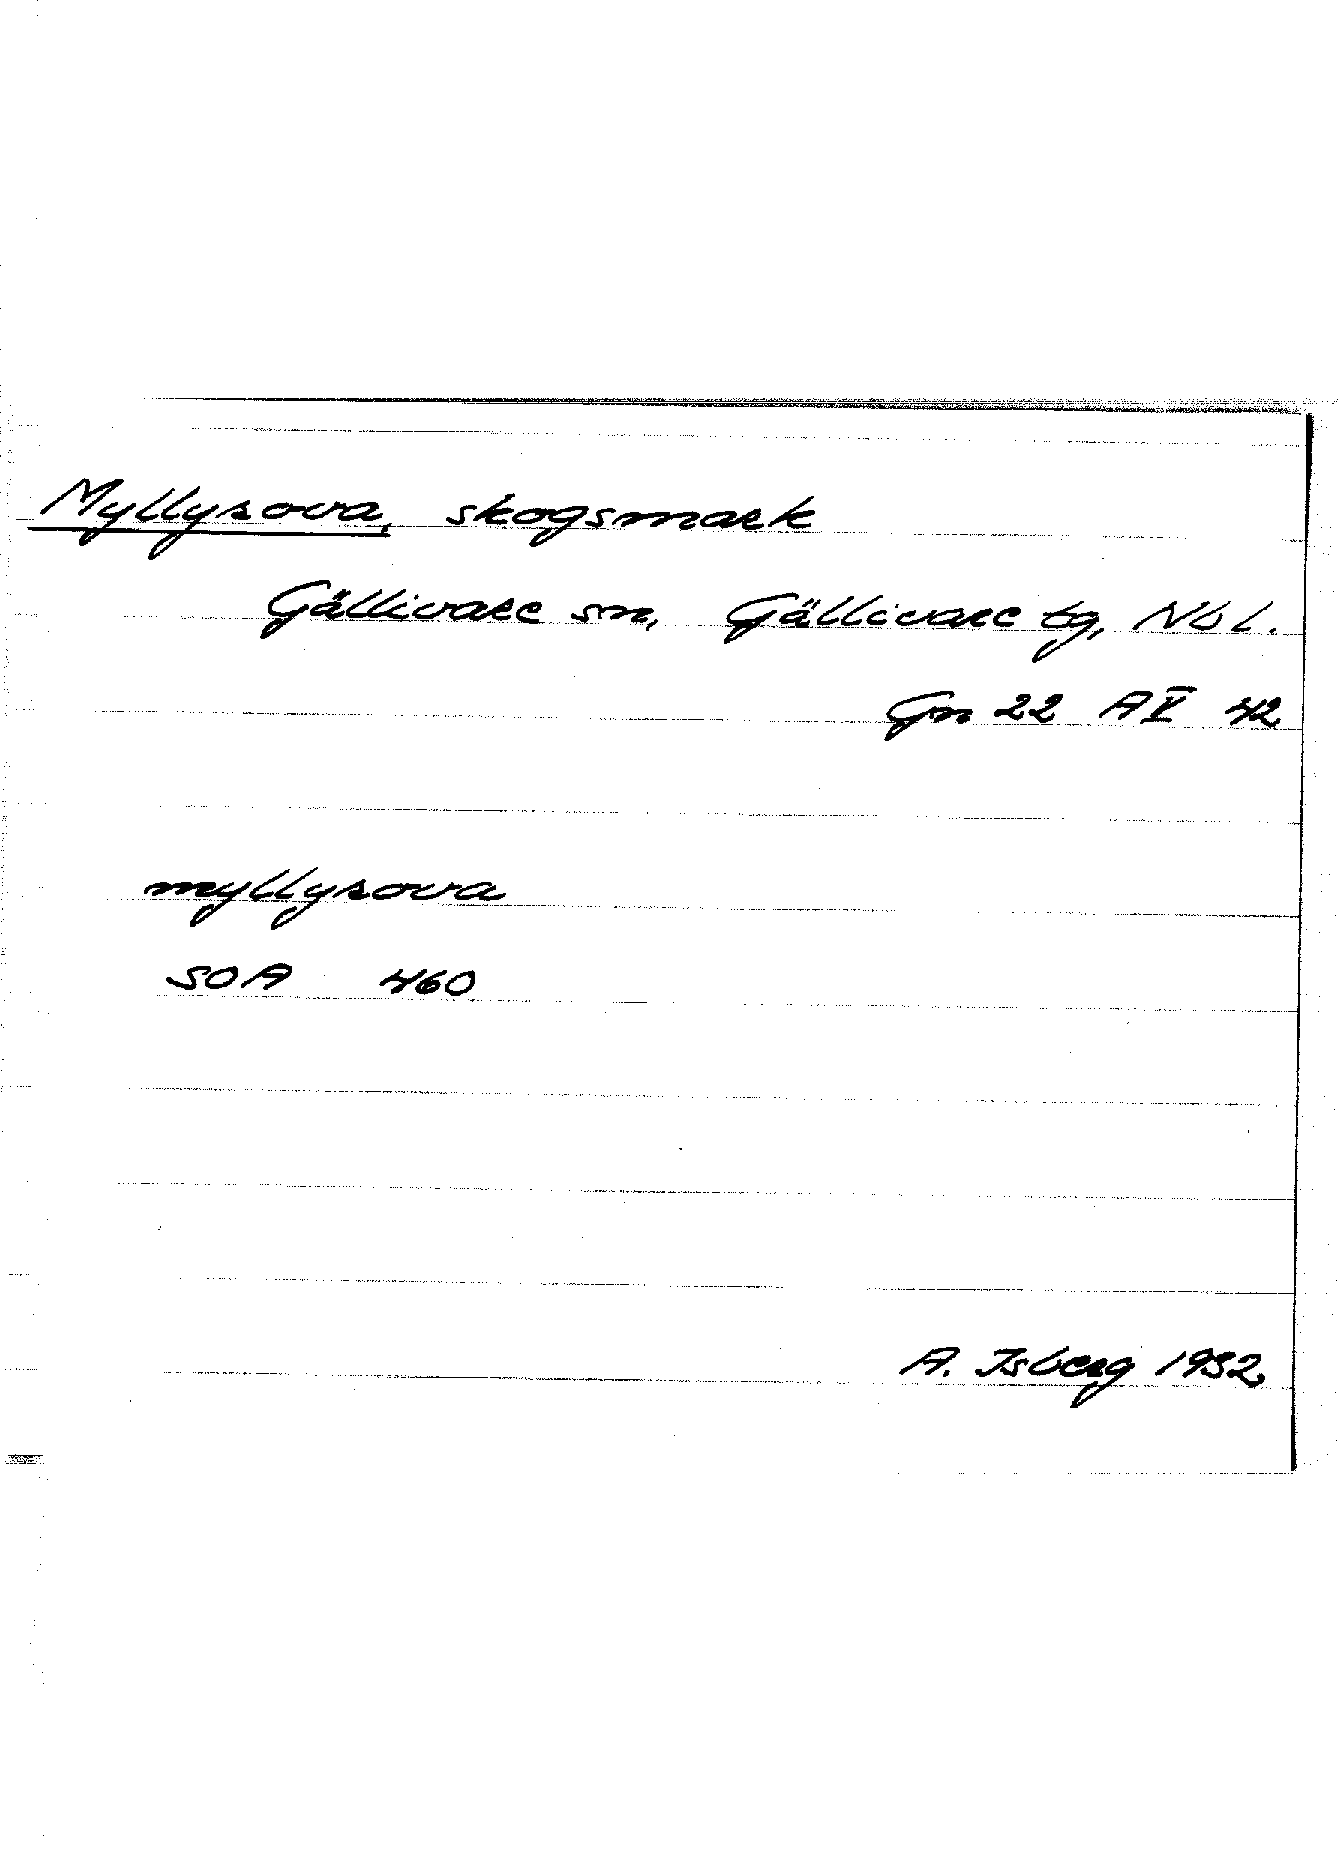 Myllyrova, skogsmark
Gällivare sn, Gällivare tg, Nb l.
Gn 22 A V 42
myllyrova
SOA 460
A. Isberg 1932